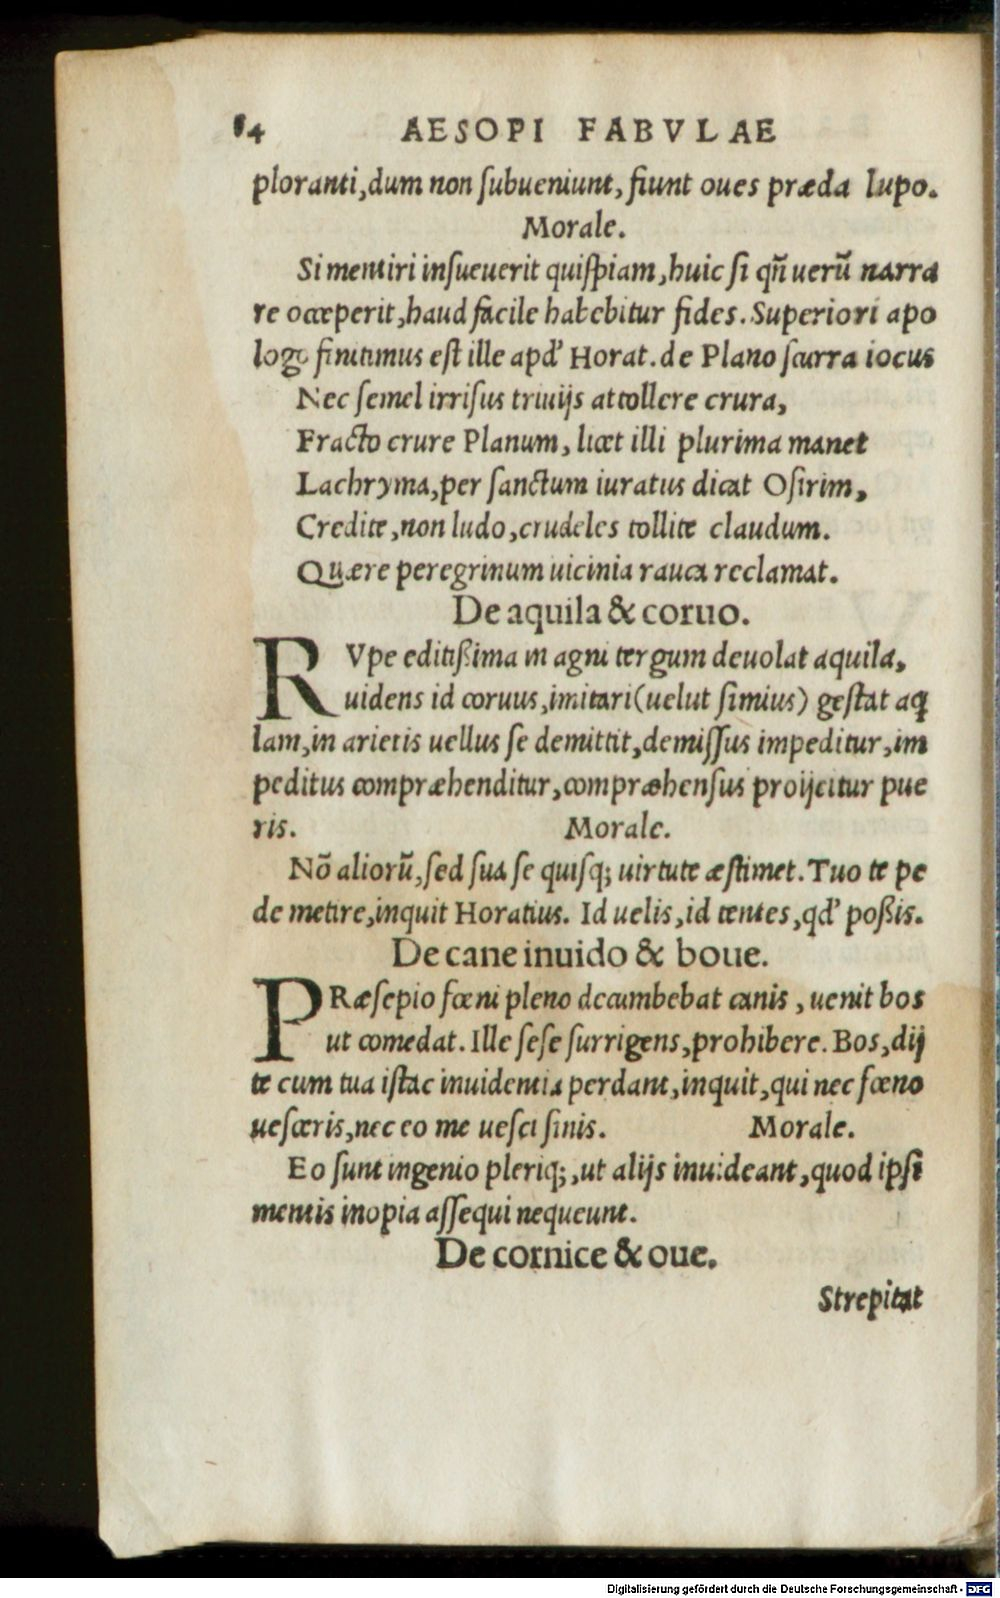 84 AESOPI FABVLAE
ploranti,dum non ſubueniunt, fiunt oues præda lupo.
Morale.
Si mentiri inſueuerit quiſpiam,huic ſi qñ uerũ narra
re occeperit,haud facile habebitur fides. Superiori apo
logo finitimus eſt ille apd' Horat. de Plano ſcurra iocus
Nec ſemel irriſus triuijs attollere crura,
Fracto crure Planum, licet illi plurima manet
Lachryma,per ſanctum iuratus dicat Oſirim,
Credite,non ludo,crudeles tollite claudum.
Quære peregrinum uicinia rauca reclamat.
De aquila & coruo.
RVpe editißima in agni tergum deuolat aquila,
uidens id coruus,imitari(uelut ſimius) geſtat aq̃
lam,in arietis uellus ſe demittit,demiſſus impeditur,im
peditus compræhenditur,compræhenſus proijcitur pue
ris. Morale.
Nõ aliorũ,ſed ſua ſe quiſq; uirtute æſtimet. Tuo te pe
de metire,inquit Horatius. Id uelis,id tentes,qd' poßis.
De cane inuido & boue.
PRæſepio fœni pleno decumbebat canis, uenit bos
ut comedat. Ille ſeſe ſurrigens,prohibere. Bos,dij
te cum tua iſtac inuidentia perdant,inquit,qui nec fœno
ueſceris,nec eo me ueſci ſinis. Morale.
Eo ſunt ingenio pleriq;,ut alijs inuideant,quod ipſi
mentis inopia aſſequi nequeunt.
De cornice & oue.
Strepitat
Digitalisierung gefördert durch die Deutsche Forschungsgemeinschaft - DFG